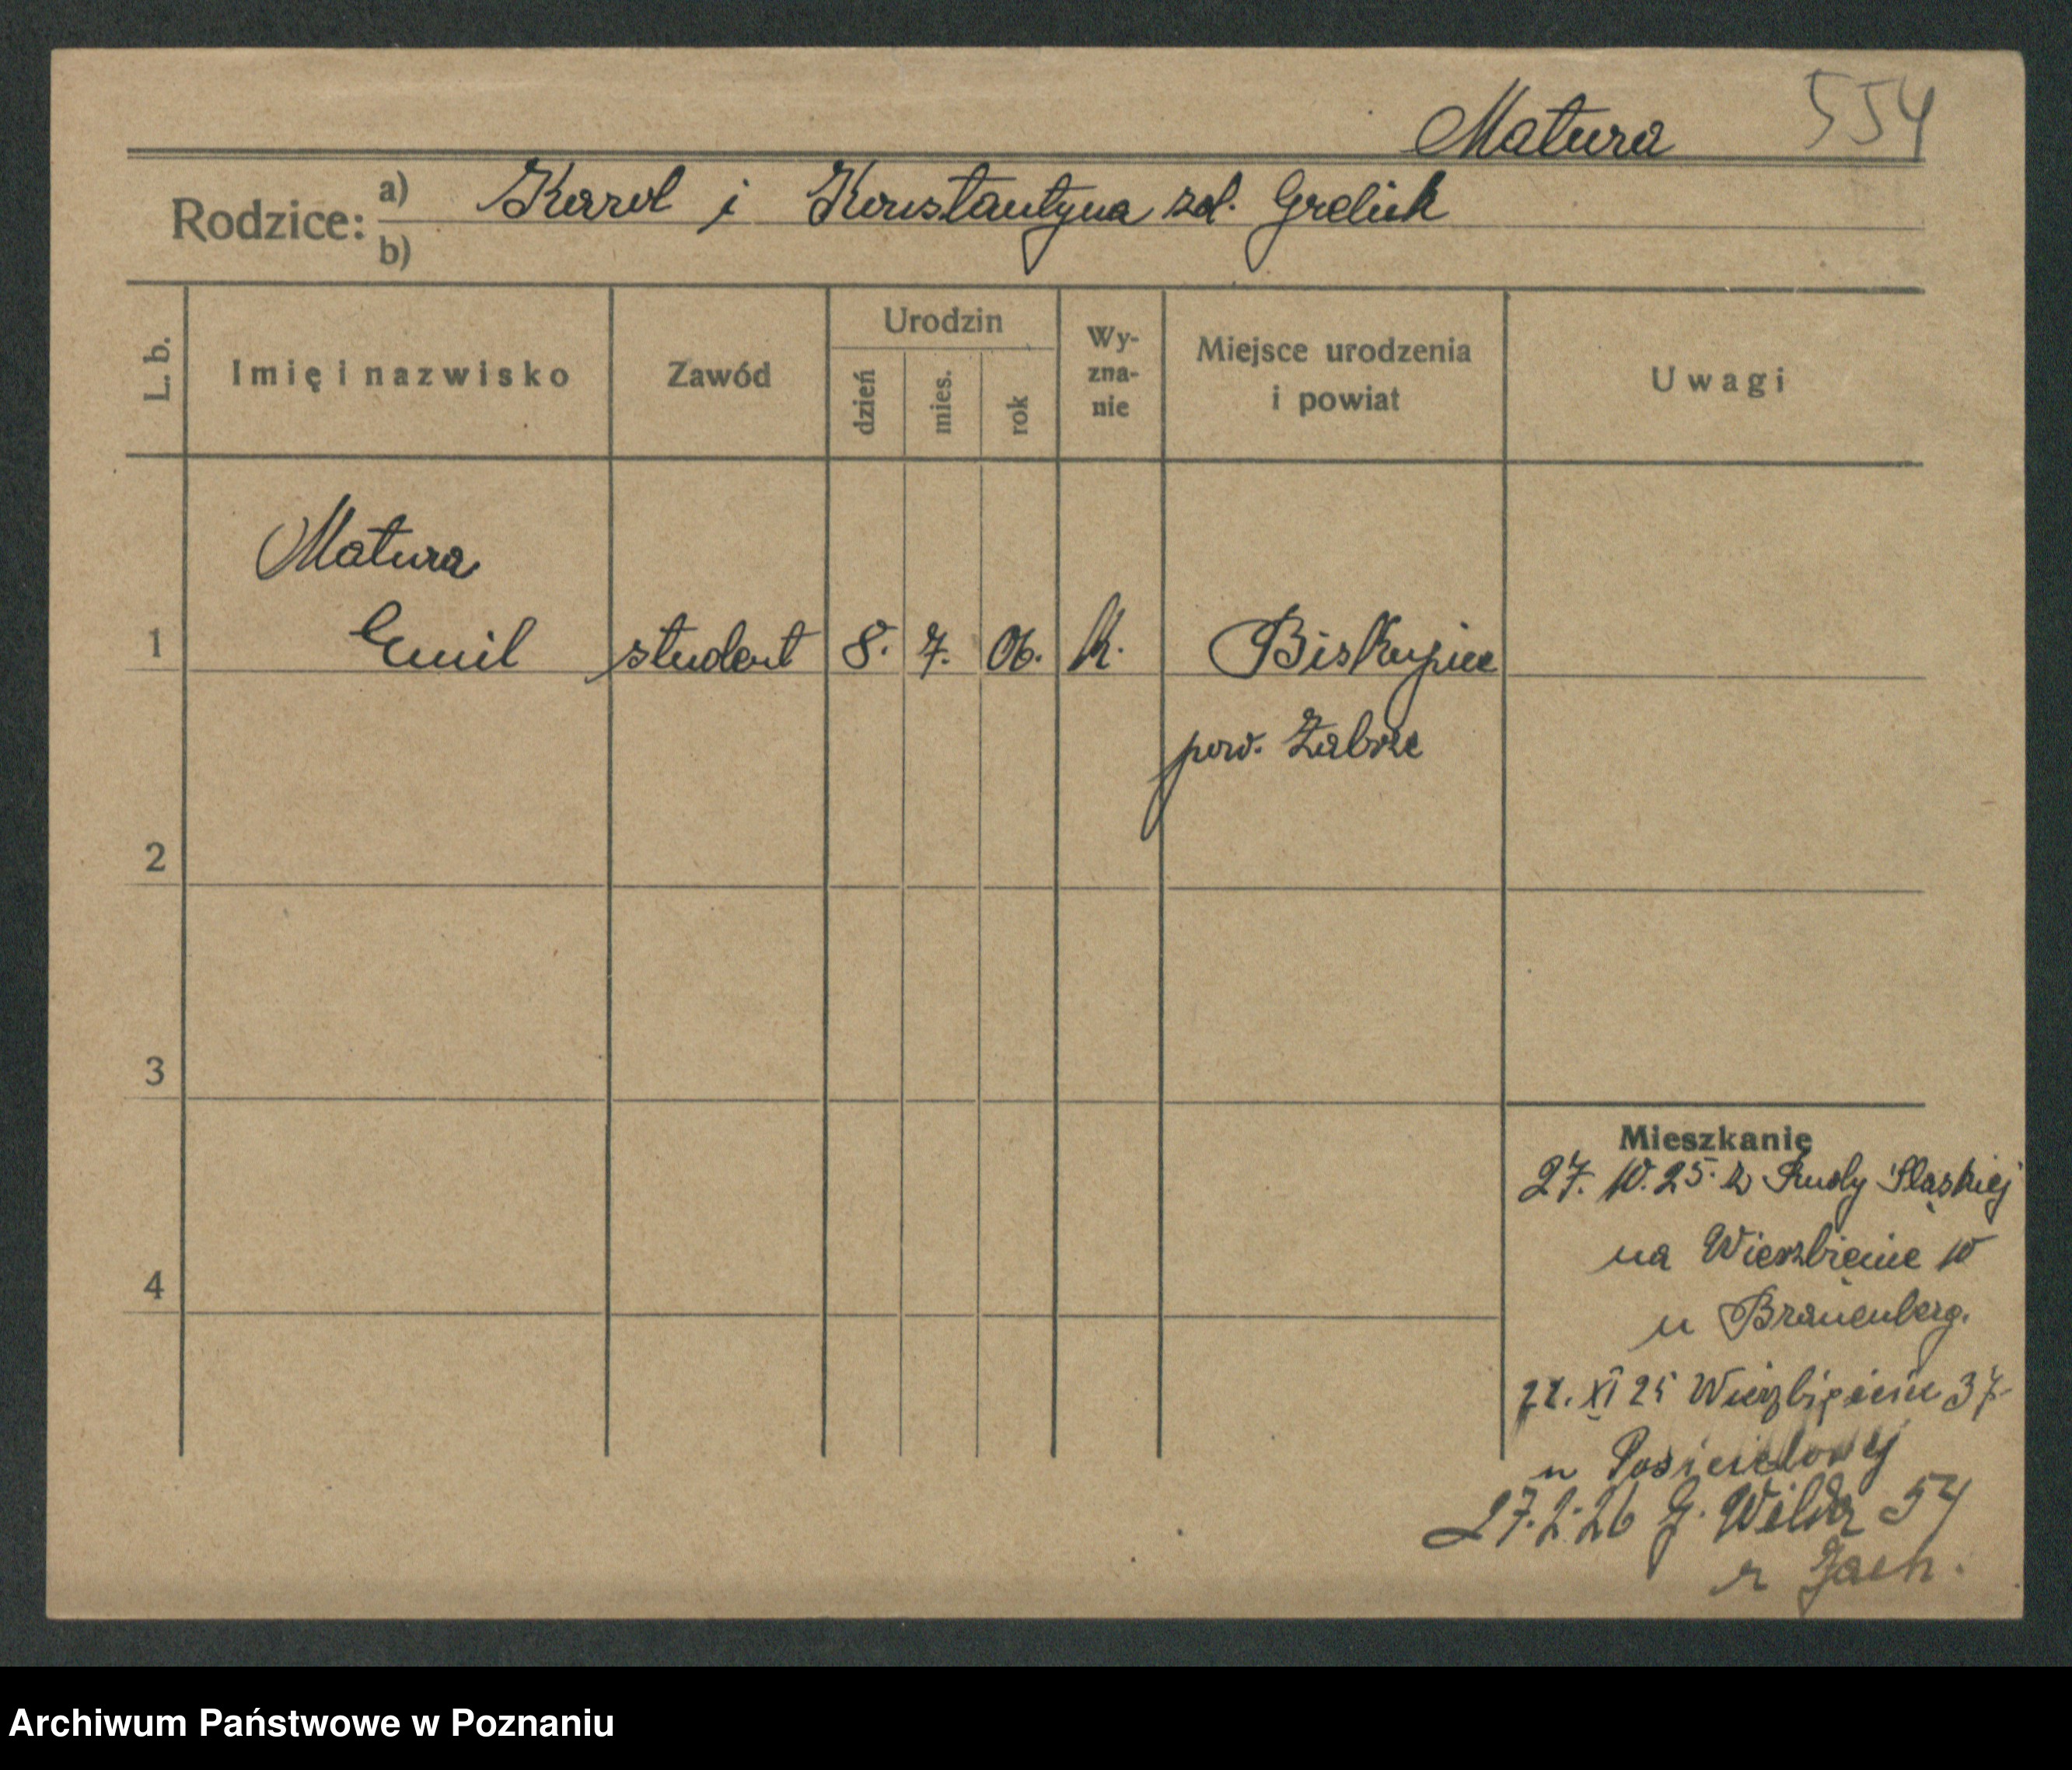 Matura 554
Rodzice: a) Karol i Konstantyna zd. Grelich
b)
L. b. Imię i nazwisko Zawód Urodzin dzień mies. rok Wyznanie Miejsce urodzenia i powiat Uwagi
Matura
1 Emil student 8. 7. 06. k. Biskupice
pow. Zabrze
2
3
Mieszkanie
27. 10. 25. z Rudy Śląskiej
na Wierzbięcie 10
4
u Branenberg.
22. XI 25 Wierzbięcice 37
u
27.2.26 G. Wilda 54
Archiwum Państwowe w Poznaniu